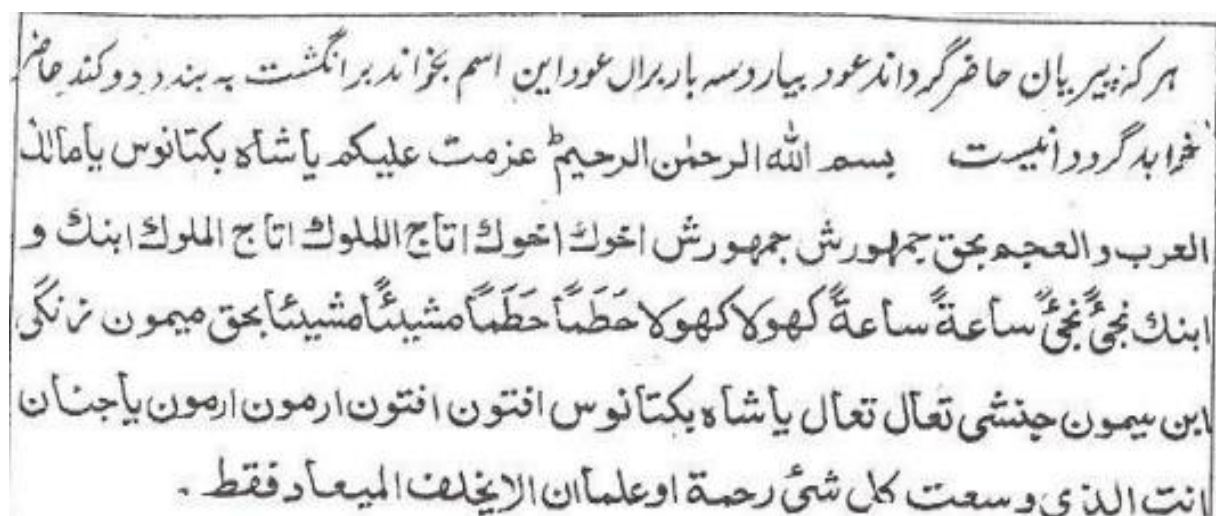 ہر کہ پیریان حاضر گرداند عود بیارد سہ بار برال عود این اسم بخواند بر انگشت بہ بندد دود کند حاضر
خواہد گردد انیست بسم الله الرحمٰن الرحيم عزمت عليكم يا شاه بكتانوس يا مالك
العرب والعجم بحق جمهورش جمهورش اخوك اخوك اتاج الملوك اتاج الملوك ابنك و
ابنك نجیً نجیً ساعةً ساعةً كهولا كهولا حَطَماً حَطَماً مشيئاً مشيئاً بحق ميمون زنگی
ابن ميمون جنشی تعال تعال يا شاه بكتانوس افتون افتون ارمون ارمون يا جنان
انت الذی وسعت كل شئ رحمة او علما ان الا يخلف الميعاد فقط۔